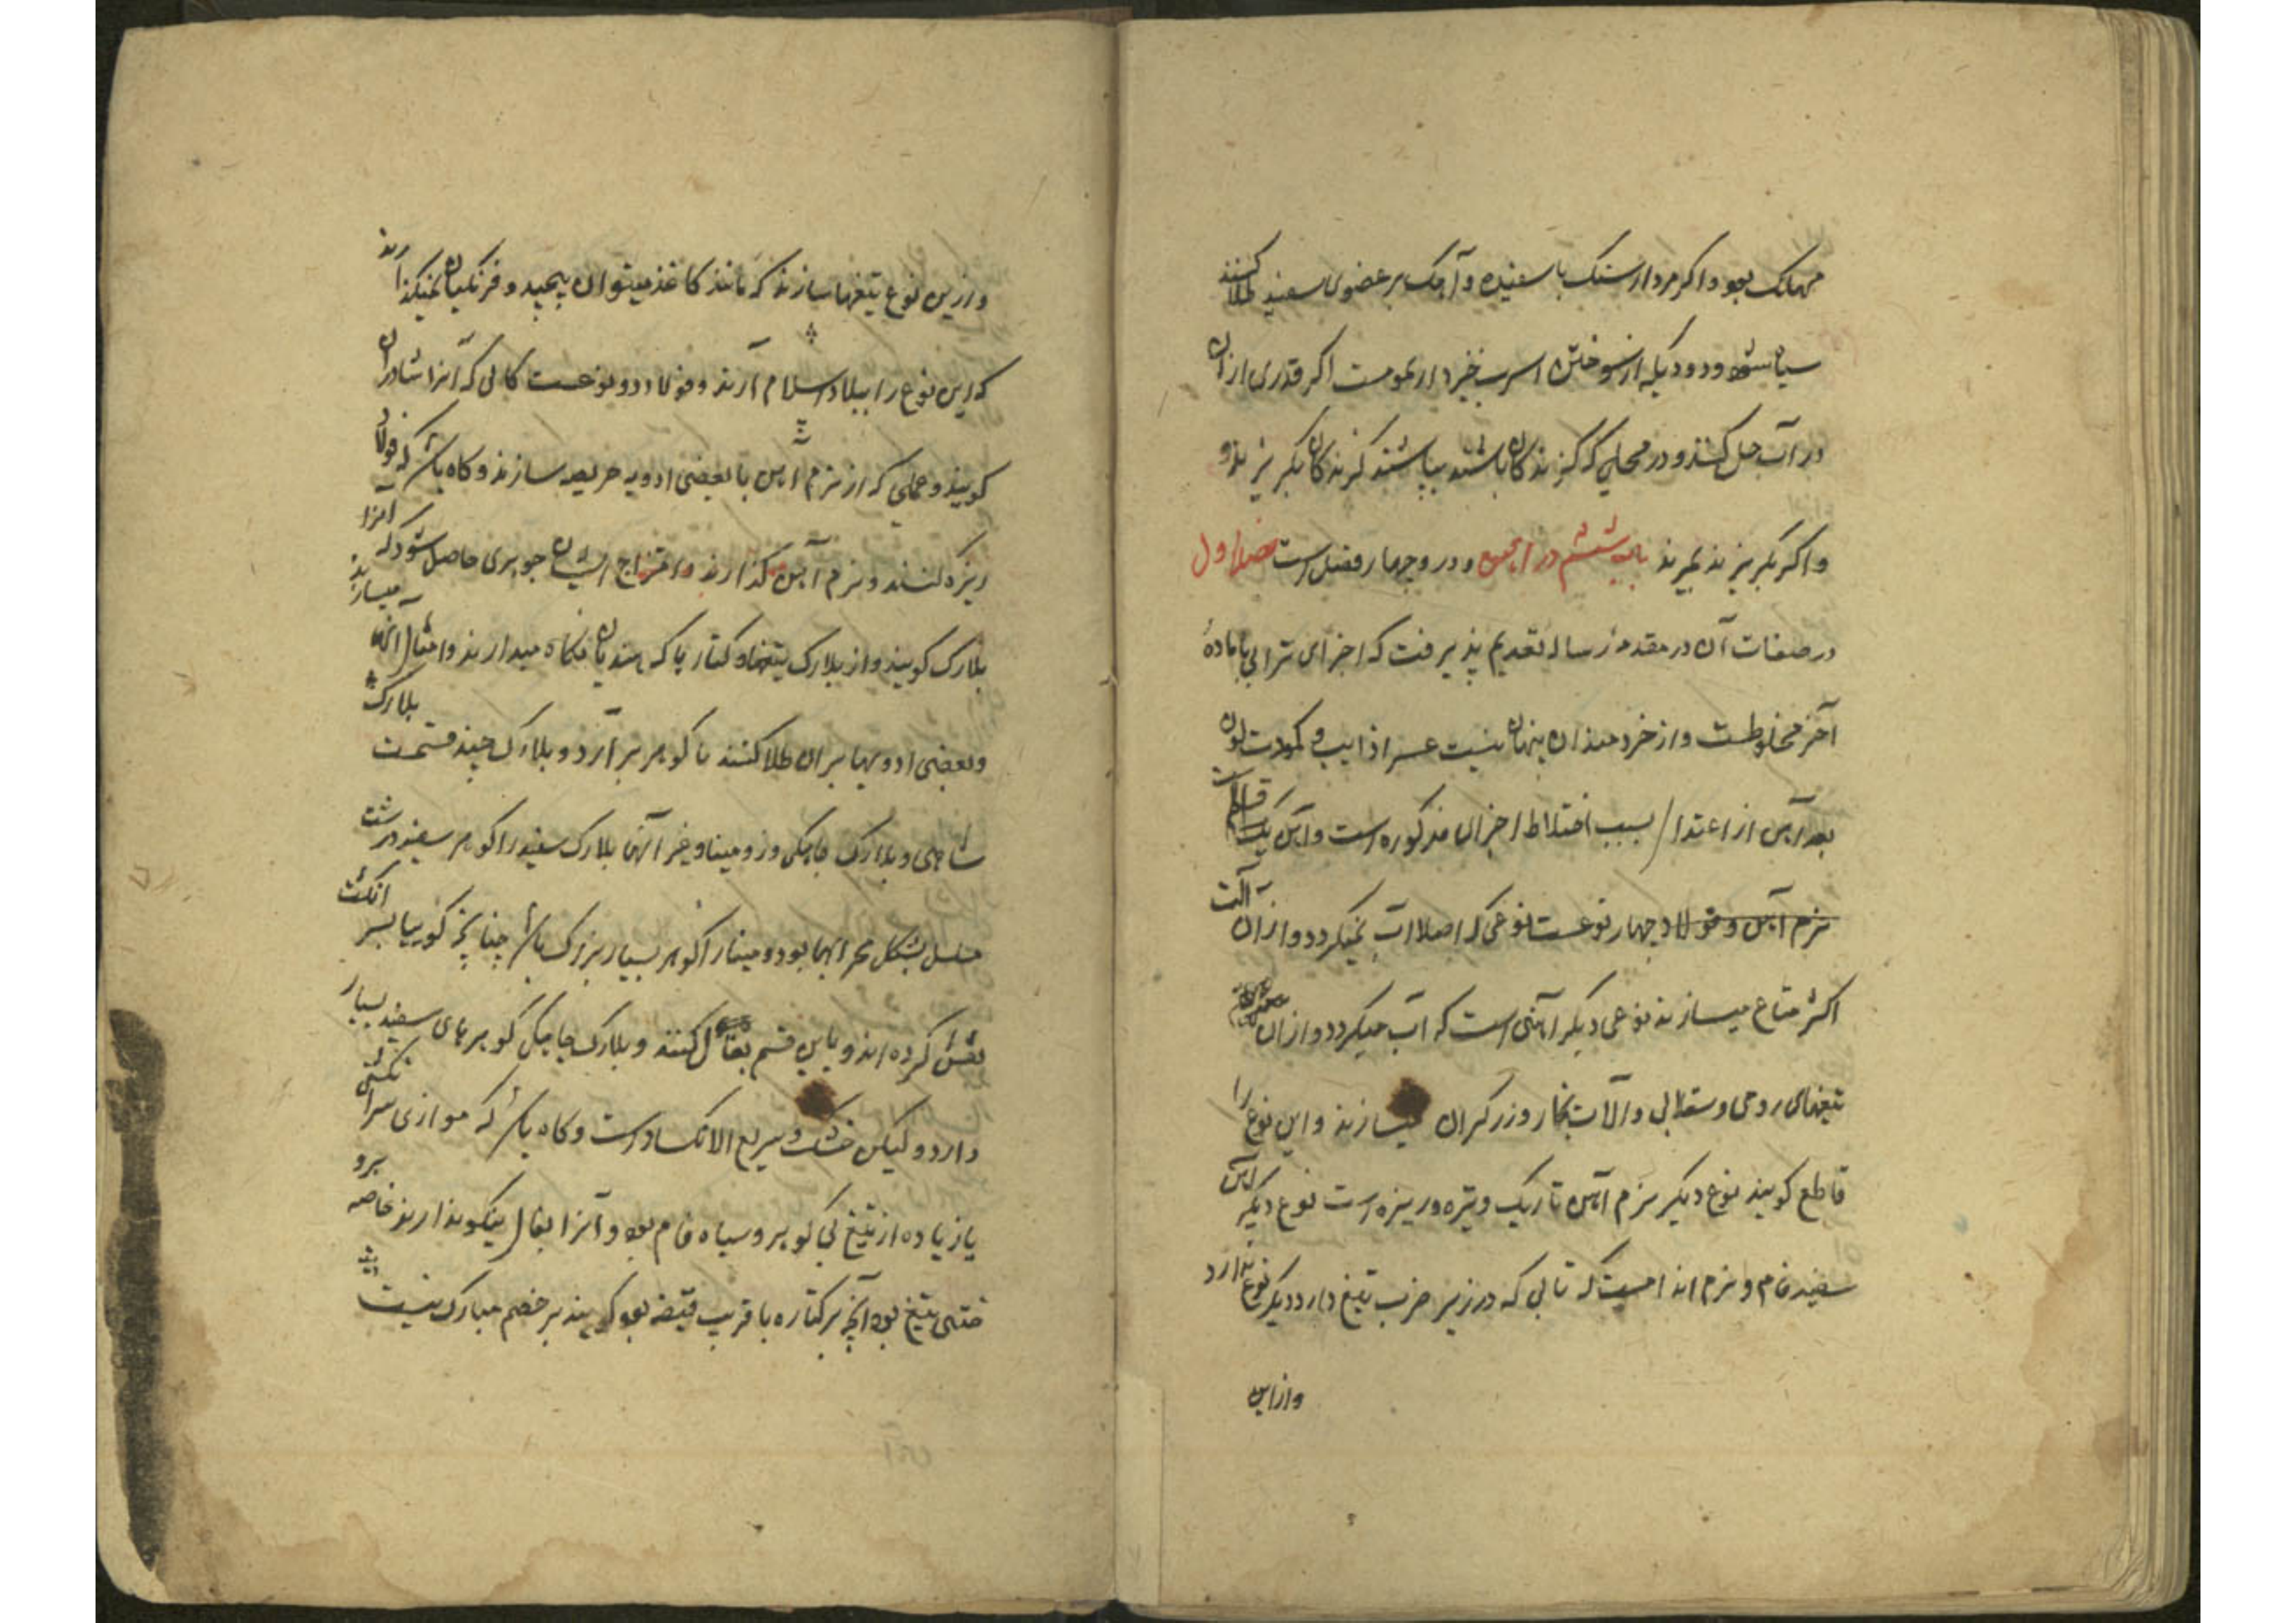 مهلک بود و اگر مردارسنگ با سفیده و آهک بر عضوی سفید طلا کنند
سیاه شود و دود یکه از سوختن اسرب خیزد دار سمومست اگر قدری ازان
در آب حل کنند و در محلی که گزندکان باشند بپاشند گزندکان بگریزند و
و اگر نگریزند بمیرند باب ششم در آهن و درو چهار فصل است فصل اول
در صفات آن در مقدمه رساله تقدیم پذیرفت که اجزای ترابی با ماده
آخر مخلوطست و از خردمندان پنهان نیست عسر اذابت و کمودت لون
بعد آهن از اعتدال بسبب اختلاط اجزای مذکوره است و آهن یک قسم
نرم آهن و فولاد چهار نوعست نوعی که اصلا آب نمیگردد و ازان آلت
اکثر متاع میسازند نوعی دیگر آهنی است که آب میگردد و ازان
تیغهای روحی و سقلابی و آلات نجار و زرگران میسازند و این نوع را
قاطع گویند نوع دیگر نرم آهن تاریک و تیره و ریزه است نوع دیگر آهن
سفید فام و نرم اندامیست که تابی که در زیر ضرب تیغ دارد دیگر نوع ندارد
و ازین
و ازین نوع تیغها سازند که مانند کاغذ میتوان پیچید و فرنگیان نمیگذارند
که این نوع را ببلاد اسلام آرند و فولاد دو نوعست کانی که آنرا شابران
گویند و عملی که از نرم آهن با بعضی ادویه حریصه سازند و گاه باشد که فولاد
ریزه کنند و نرم آهن گذارند و امتزاج ایشان جوهری حاصل شود که آنرا
بلارک گویند و از بلارک تیغها و کتارها که هندیان نگاه میدارند و امثال آنها میسازند
و بعضی ادویها بران طلا کنند تا گوهر برآرد و بلارک چند قسمت بلارک
شاهی و بلارک جاجکی و زومینا و غیر آنها بلارک سفید را گوهر سفید درشت
مسلسل بشکل بحرابها بود و مینا را گوهر بسیار بزرگ باشد چنانچه گوییا بسر انگشت
نقش کرده اند و باین قسم بفال کنند و بلارک جاجکی گوهرهای سفید بسیار
دارد و لیکن خشک و سریع الانکسار است و گاه باشد که موازی سرانگشتی
یا زیاده از تیغ بی گوهر و سیاه فام بود و آنرا بفال نیکو ندارند خاصه برو
منتهی تیغ بود آنچه بر کتاره با قریب قبضه بود گویند بر خصم مبارک نیست